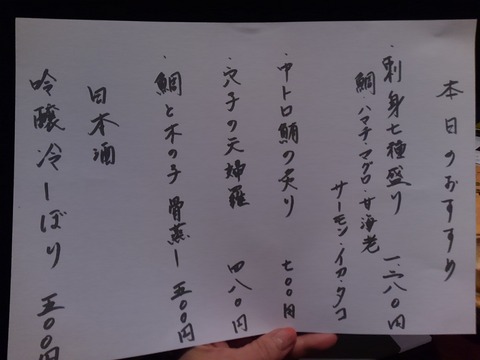 本日のおすすめ
・刺身七種盛り 一、二八〇円
鯛・ハマチ・マグロ・甘海老
サーモン・イカ・タコ
・中トロ鮪の炙り 七〇〇円
・穴子の天婦羅 四八〇円
・鯛と木の子 骨蒸し 五〇〇円
日本酒
吟醸冷しぼり 五〇〇円